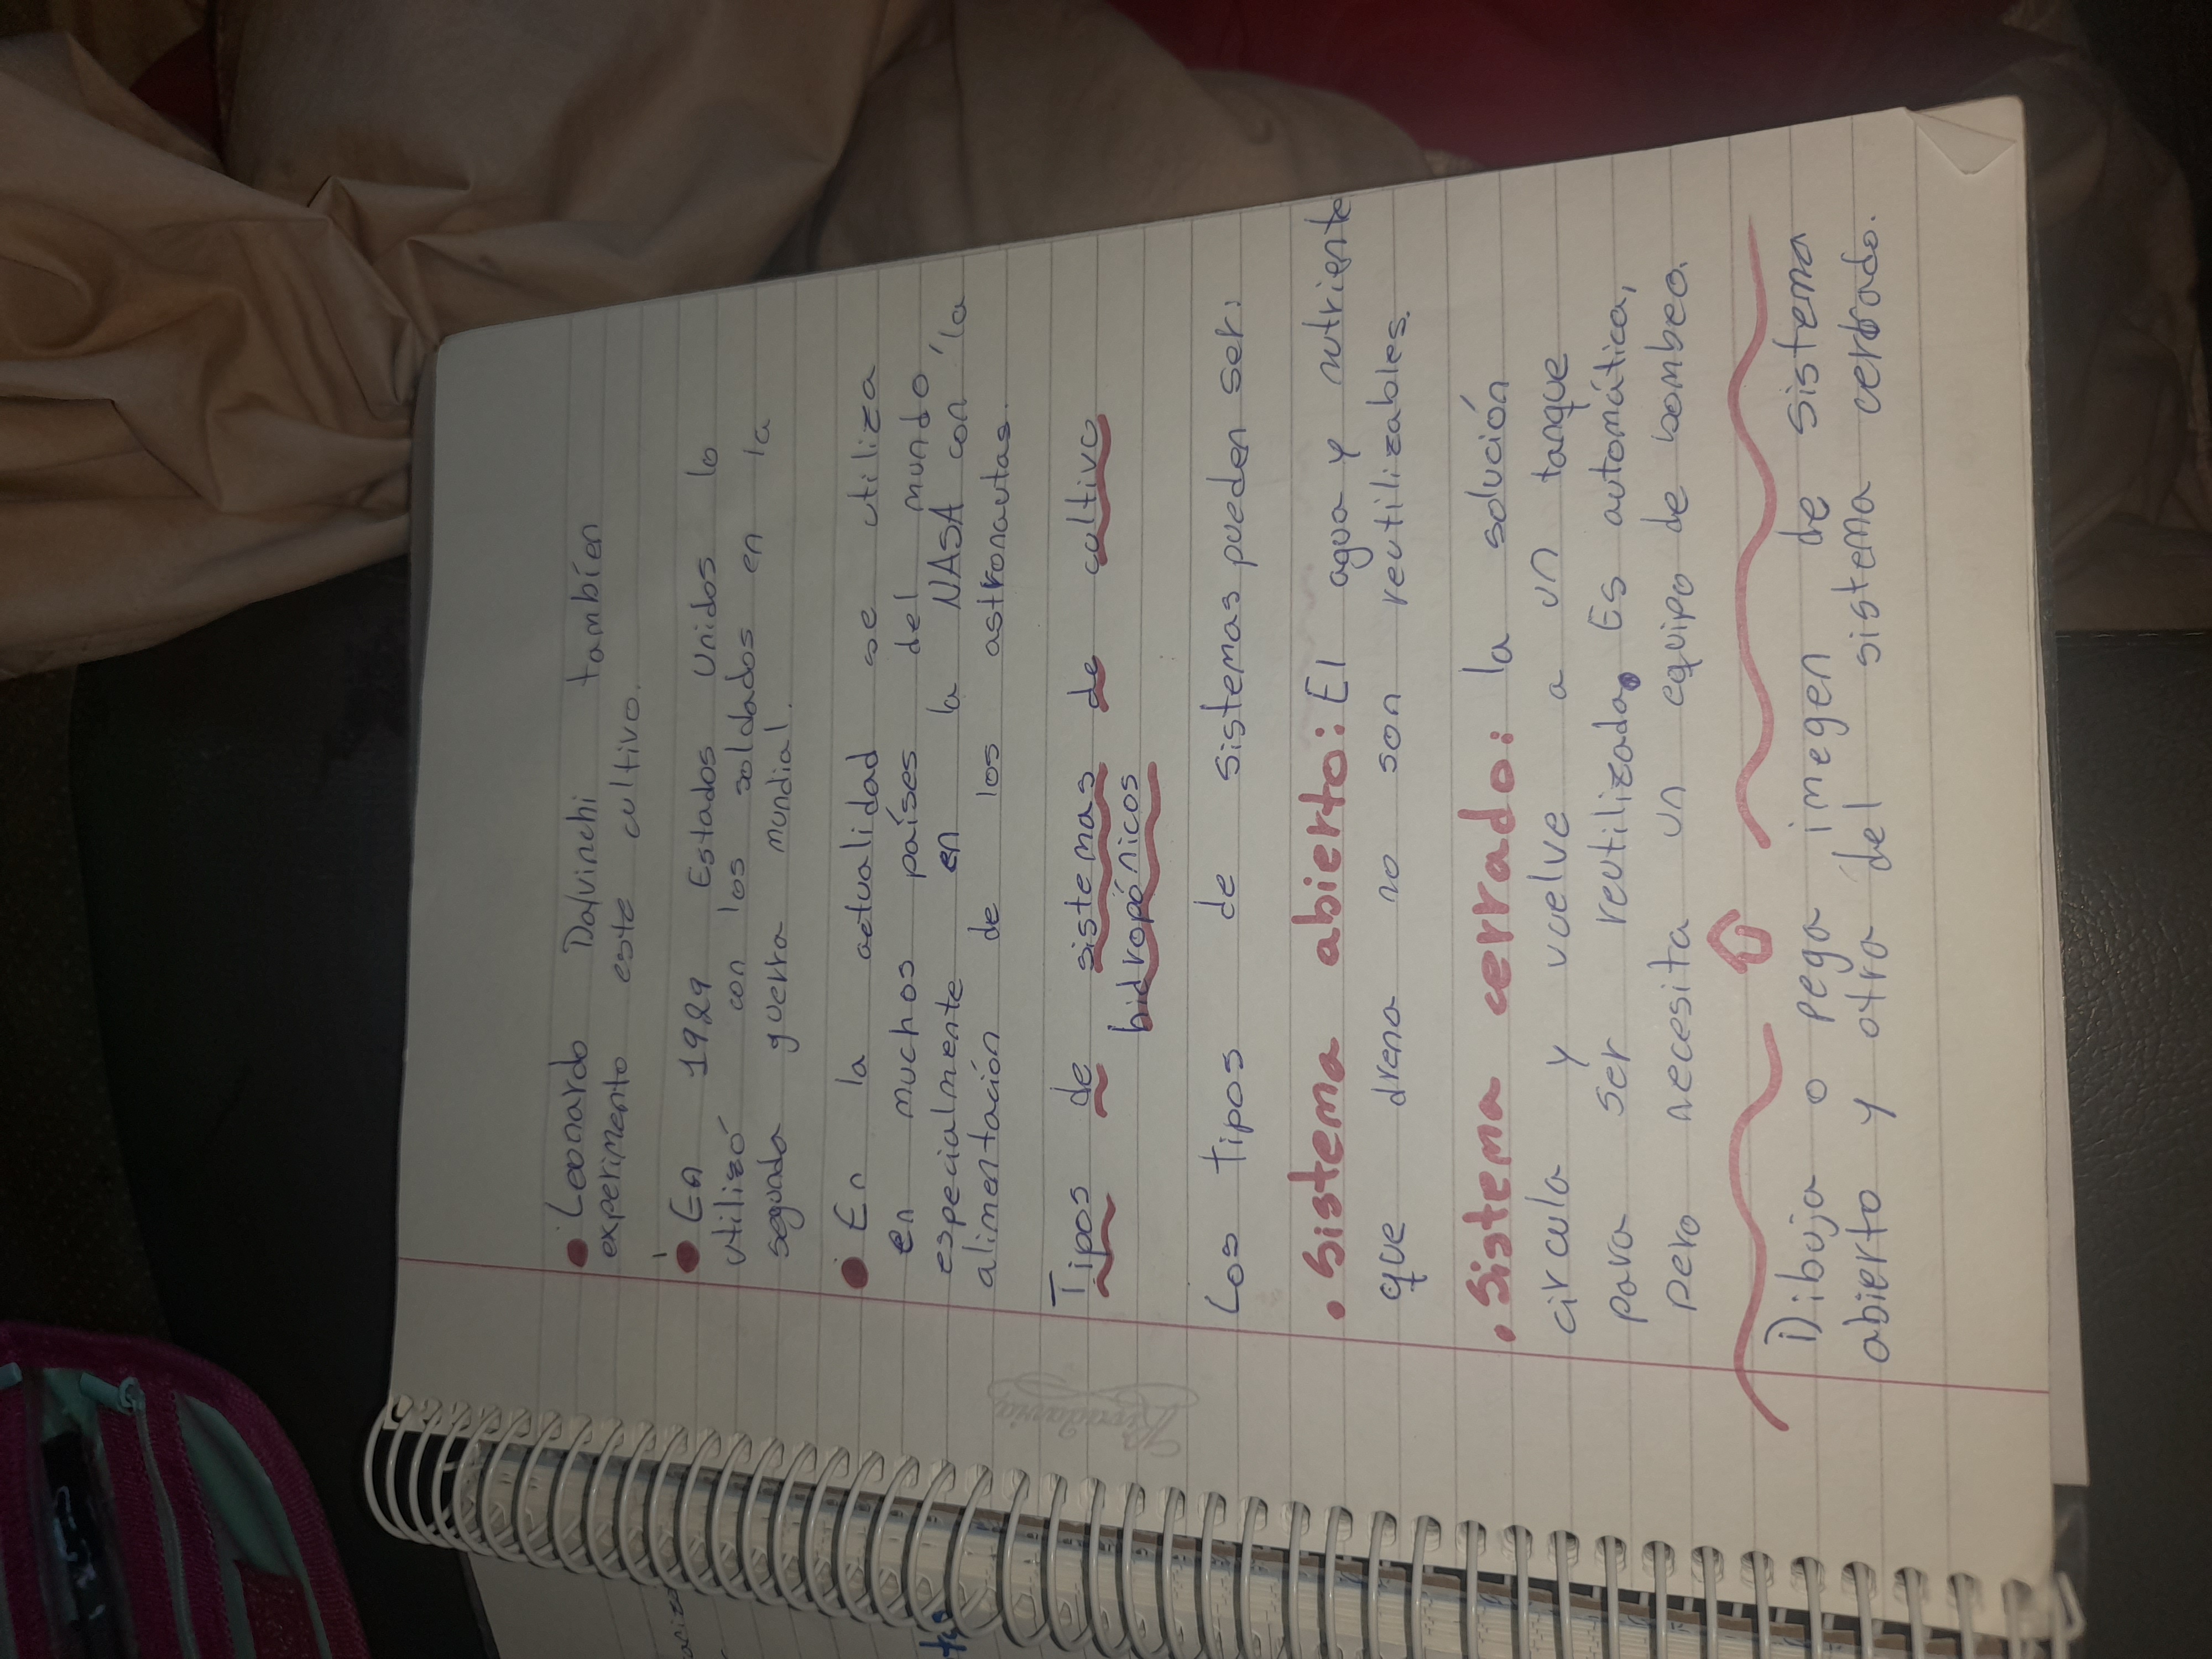 • Leonardo Da/vinchi también
experimento este cultivo.
• En 1929 Estados Unidos lo
utilizó con los soldados en la
segunda guerra mundial.
• En la actualidad se utiliza
en muchos países del mundo
especialmente en la NASA con la
alimentación de los astronautas.
Tipos de sistemas de cultivo
hidropónicos
Los tipos de sistemas pueden ser:
• Sistema abierto: El agua y nutriente
que drena no son reutilizables.
• Sistema cerrado: la solución
circula y vuelve a un tanque
para ser reutilizada. Es automática,
pero necesita un equipo de bombeo.
1) Dibuja o pega imegen de sistema
abierto y otra del sistema cerrado.
Rivadavia